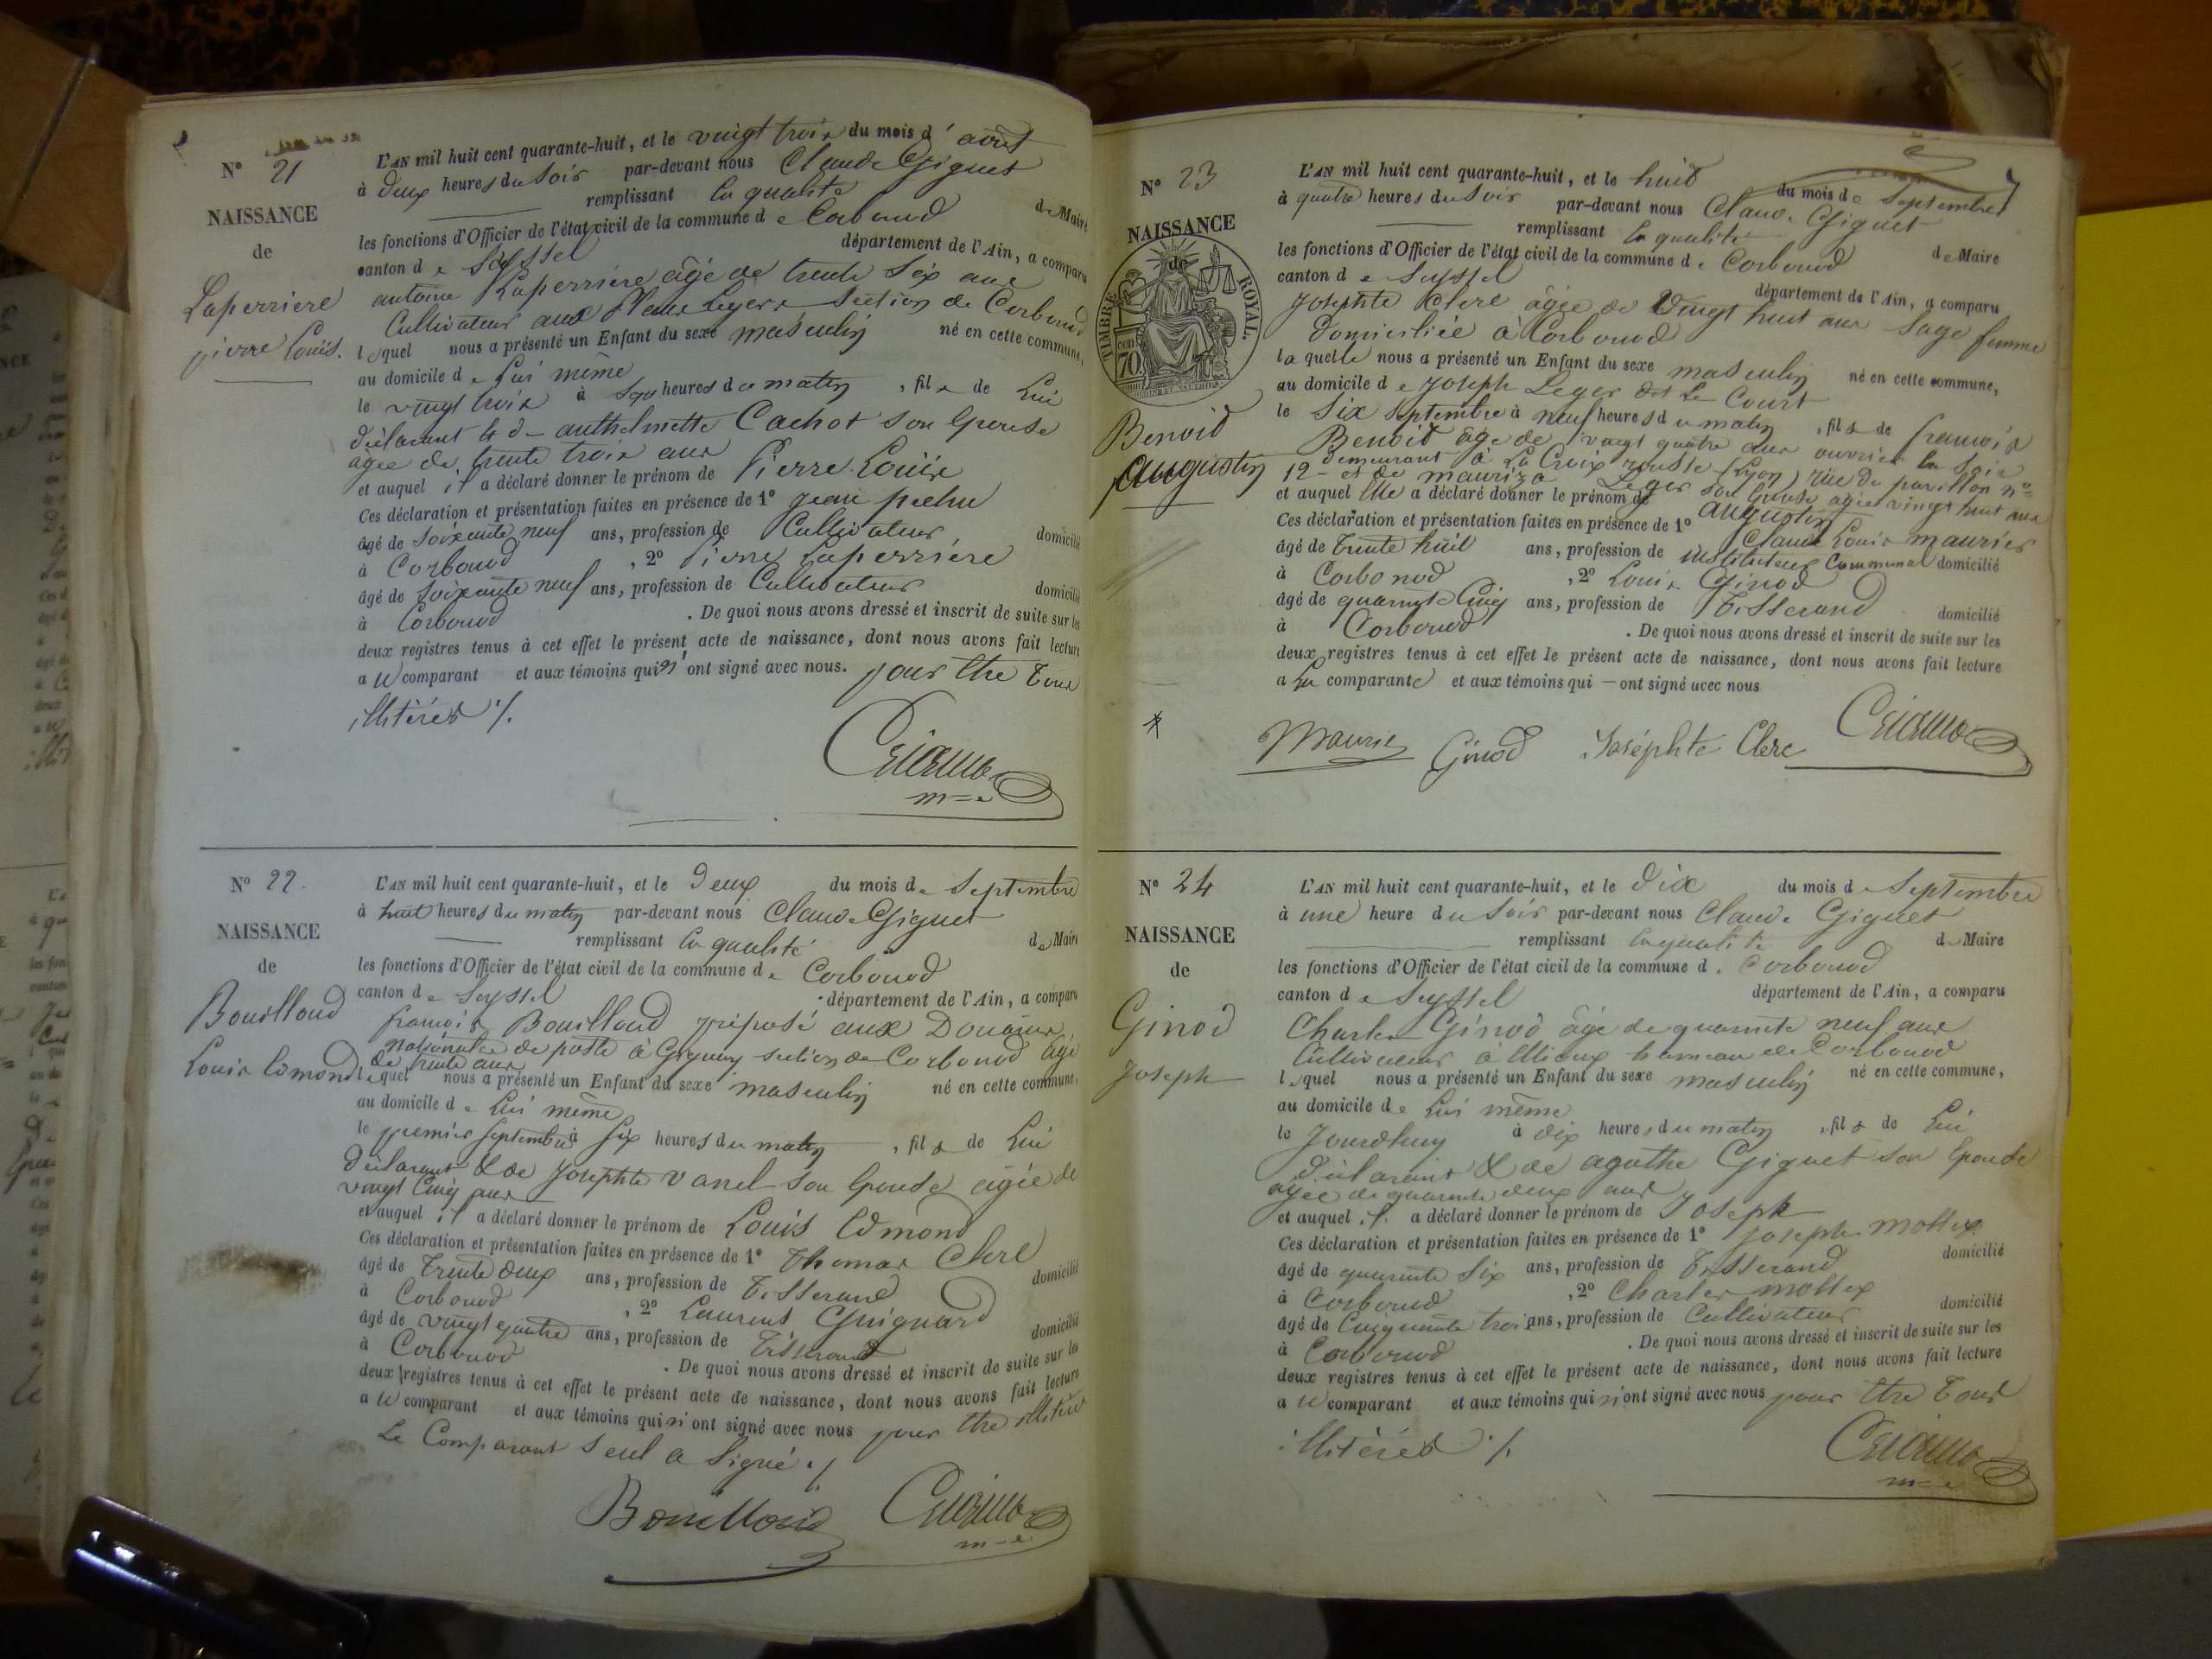 N° 21
NAISSANCE
de
Laperriere
pierre Louis.
L'AN mil huit cent quarante-huit, et le vingt trois du mois d'août
à deux heures du soir par-devant nous Claude Giguet
remplissant la qualité de Maire
les fonctions d'Officier de l'état civil de la commune de Corbonod
canton de Seyssel département de l'Ain, a comparu
antoine Laperriere âgé de trente six ans
Cultivateur aux section de Corbonod
lequel nous a présenté un Enfant du sexe masculin né en cette commune,
au domicile de Lui même
le vingt trois à heures du matin, fils de Lui
déclarant & d anthelmette Cachot son Epouse
âgée de trente trois ans
et auquel il a déclaré donner le prénom de Pierre Louis
Ces déclaration et présentation faites en présence de 1° jean
âgé de soixante neuf ans, profession de Cultivateur domicilié
à Corbonod, 2° Pierre Laperriére
âgé de soixante neuf ans, profession de Cultivateur domicilié
à Corbonod. De quoi nous avons dressé et inscrit de suite sur les
deux registres tenus à cet effet le présent acte de naissance, dont nous avons fait lecture
au comparant et aux témoins qui n'ont signé avec nous. pour être tous
illitérés ./.
N° 22.
NAISSANCE
de
Bouilloud
Louis Edmond
L'AN mil huit cent quarante-huit, et le Deux du mois de Septembre
à huit heures du matin par-devant nous Claude Giguet
remplissant la qualité de Maire
les fonctions d'Officier de l'état civil de la commune de Corbonod
canton de Seyssel département de l'Ain, a comparu
françois Bouilloud préposé aux Douanes
de poste à section de Corbonod âgé
de trente ans
lequel nous a présenté un Enfant du sexe masculin né en cette commune,
au domicile de Lui même
le premier Septembre à Six heures du matin, fils de Lui
déclarant & de Josephte Vanel son Epouse âgée de
vingt Cinq ans
et auquel il a déclaré donner le prénom de Louis Edmond
Ces déclaration et présentation faites en présence de 1° Thomas Clerc
âgé de Trente deux ans, profession de Tisserand domicilié
à Corbonod, 2° Laurent Guignard
âgé de vingt quatre ans, profession de Tisserand domicilié
à Corbonod. De quoi nous avons dressé et inscrit de suite sur les
deux registres tenus à cet effet le présent acte de naissance, dont nous avons fait lecture
au comparant et aux témoins qui n'ont signé avec nous pour être illitérés
Le Comparant Seul a Signé ./.
Bouilloud
N° 23
NAISSANCE
de
TIMBRE ROYAL
70
Benoid
augustin
L'AN mil huit cent quarante-huit, et le huit du mois de Septembre
à quatre heures du Soir par-devant nous Claude Giguet
remplissant la qualité de Maire
les fonctions d'Officier de l'état civil de la commune de Corbonod
canton de Seyssel département de l'Ain, a comparu
Josephte Clerc âgée de Vingt huit ans Sage femme
Domiciliée à Corbonod
laquelle nous a présenté un Enfant du sexe masculin né en cette commune,
au domicile de Joseph Leger dit Le Court
le Six Septembre à neuf heures du matin, fils de françois
Benoid âgé de vingt quatre ans ouvrier en Soie
demeurant à La Croix rousse (Lyon) rue du pavillon n°
12 et de mauriza Leger son Epouse agée vingt huit ans
et auquel Elle a déclaré donner le prénom de augustin
Ces déclaration et présentation faites en présence de 1° Claude Louis maurier
âgé de Trente huit ans, profession de instituteur Communal domicilié
à Corbonod, 2° Louis Ginod
âgé de quarante Cinq ans, profession de Tisserand domicilié
à Corbonod. De quoi nous avons dressé et inscrit de suite sur les
deux registres tenus à cet effet le présent acte de naissance, dont nous avons fait lecture
a La comparante et aux témoins qui — ont signé avec nous
Maurier Ginod Joséphte Clerc
N° 24
NAISSANCE
de
Ginod
Joseph
L'AN mil huit cent quarante-huit, et le dix du mois de Septembre
à une heure du Soir par-devant nous Claude Giguet
remplissant la qualité de Maire
les fonctions d'Officier de l'état civil de la commune de Corbonod
canton de Seyssel département de l'Ain, a comparu
Charles Ginod âgé de quarante neuf ans
Cultivateur à hameau de Corbonod
lequel nous a présenté un Enfant du sexe masculin né en cette commune,
au domicile de Lui même
le Jourdhuy à dix heures du matin, fils de Lui
déclarant & de agathe Giguet son Epouse
agée de quarante deux ans
et auquel il a déclaré donner le prénom de Joseph
Ces déclaration et présentation faites en présence de 1° joseph Mottex
âgé de quarante Six ans, profession de Tisserand domicilié
à Corbonod, 2° Charles mottex
âgé de Cinquante trois ans, profession de Cultivateur domicilié
à Corbonod. De quoi nous avons dressé et inscrit de suite sur les
deux registres tenus à cet effet le présent acte de naissance, dont nous avons fait lecture
au comparant et aux témoins qui n'ont signé avec nous pour être Tous
illitérés ./.